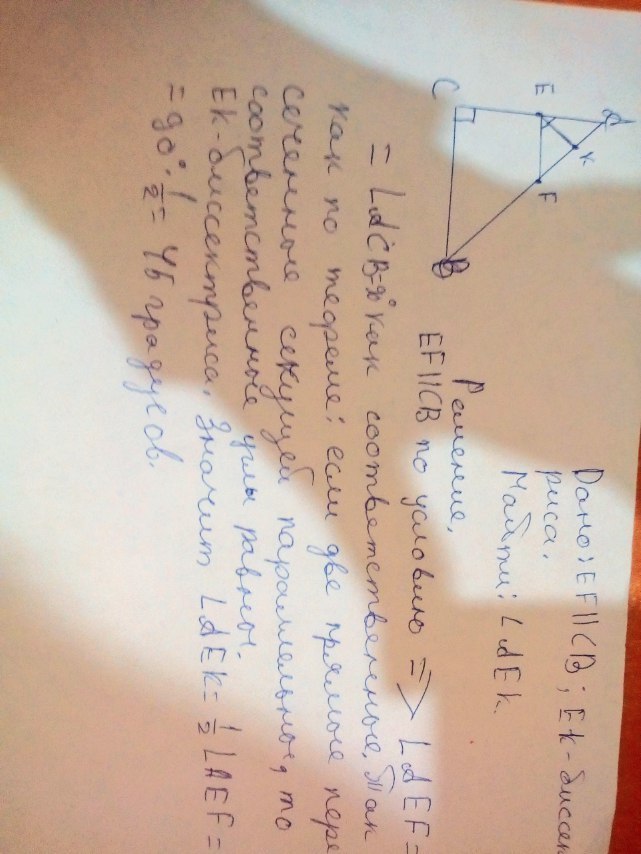 C
E
A
K
F
B
Дано: EF||CB; EK-биссект
риса.
Найти: ∠AEK.
Решение.
EF||CB по условию => ∠AEF =
= ∠ACB=90° как соответственные, так
как по теореме: если две прямые пере
сеченные секущей параллельные, то
соответственные углы равны.
EK-биссектриса. Значит, ∠AEK = 1/2 ∠AEF =
= 90° · 1/2 = 45 градусов.